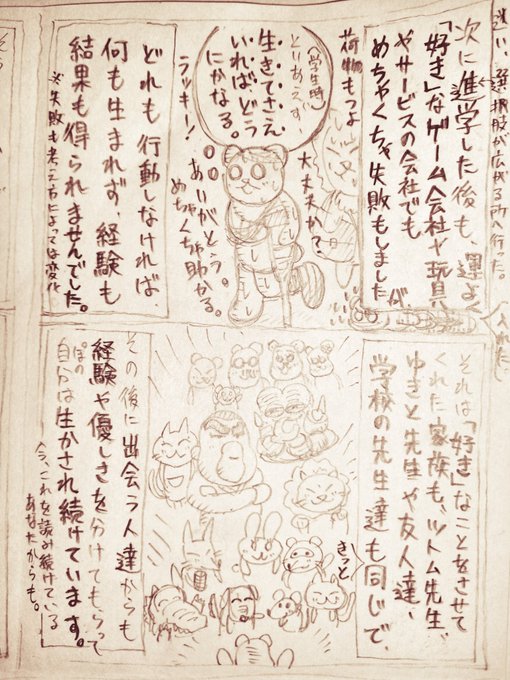 迷い、選択肢が広がる所へ行った。
入れた
次に進学した後も、運よく
「好き」なゲーム会社や玩具
やサービスの会社でも
めちゃくちゃ失敗もしましたが、
荷物もつよ
大丈夫か?
(学生時)
とりあえず、
生きてさえ
いれば、どう
にかなる。
ラッキー!
あいがとう。
めちゃくちゃ助かる。
どれも行動しなければ、
何も生まれず、経験も
結果も得られませんでした。
※失敗も考え方によっては変化
それは「好き」なことをさせて
くれた家族も、ツトム先生、
ゆきと先生や友人達、
学校の先生達も同じで、
きっと
その後に出会う人達からも
経験や優しさを分けてもらって
ぼの
自分は生かされ続けています。
今、これを読み続けている
あなたからも。